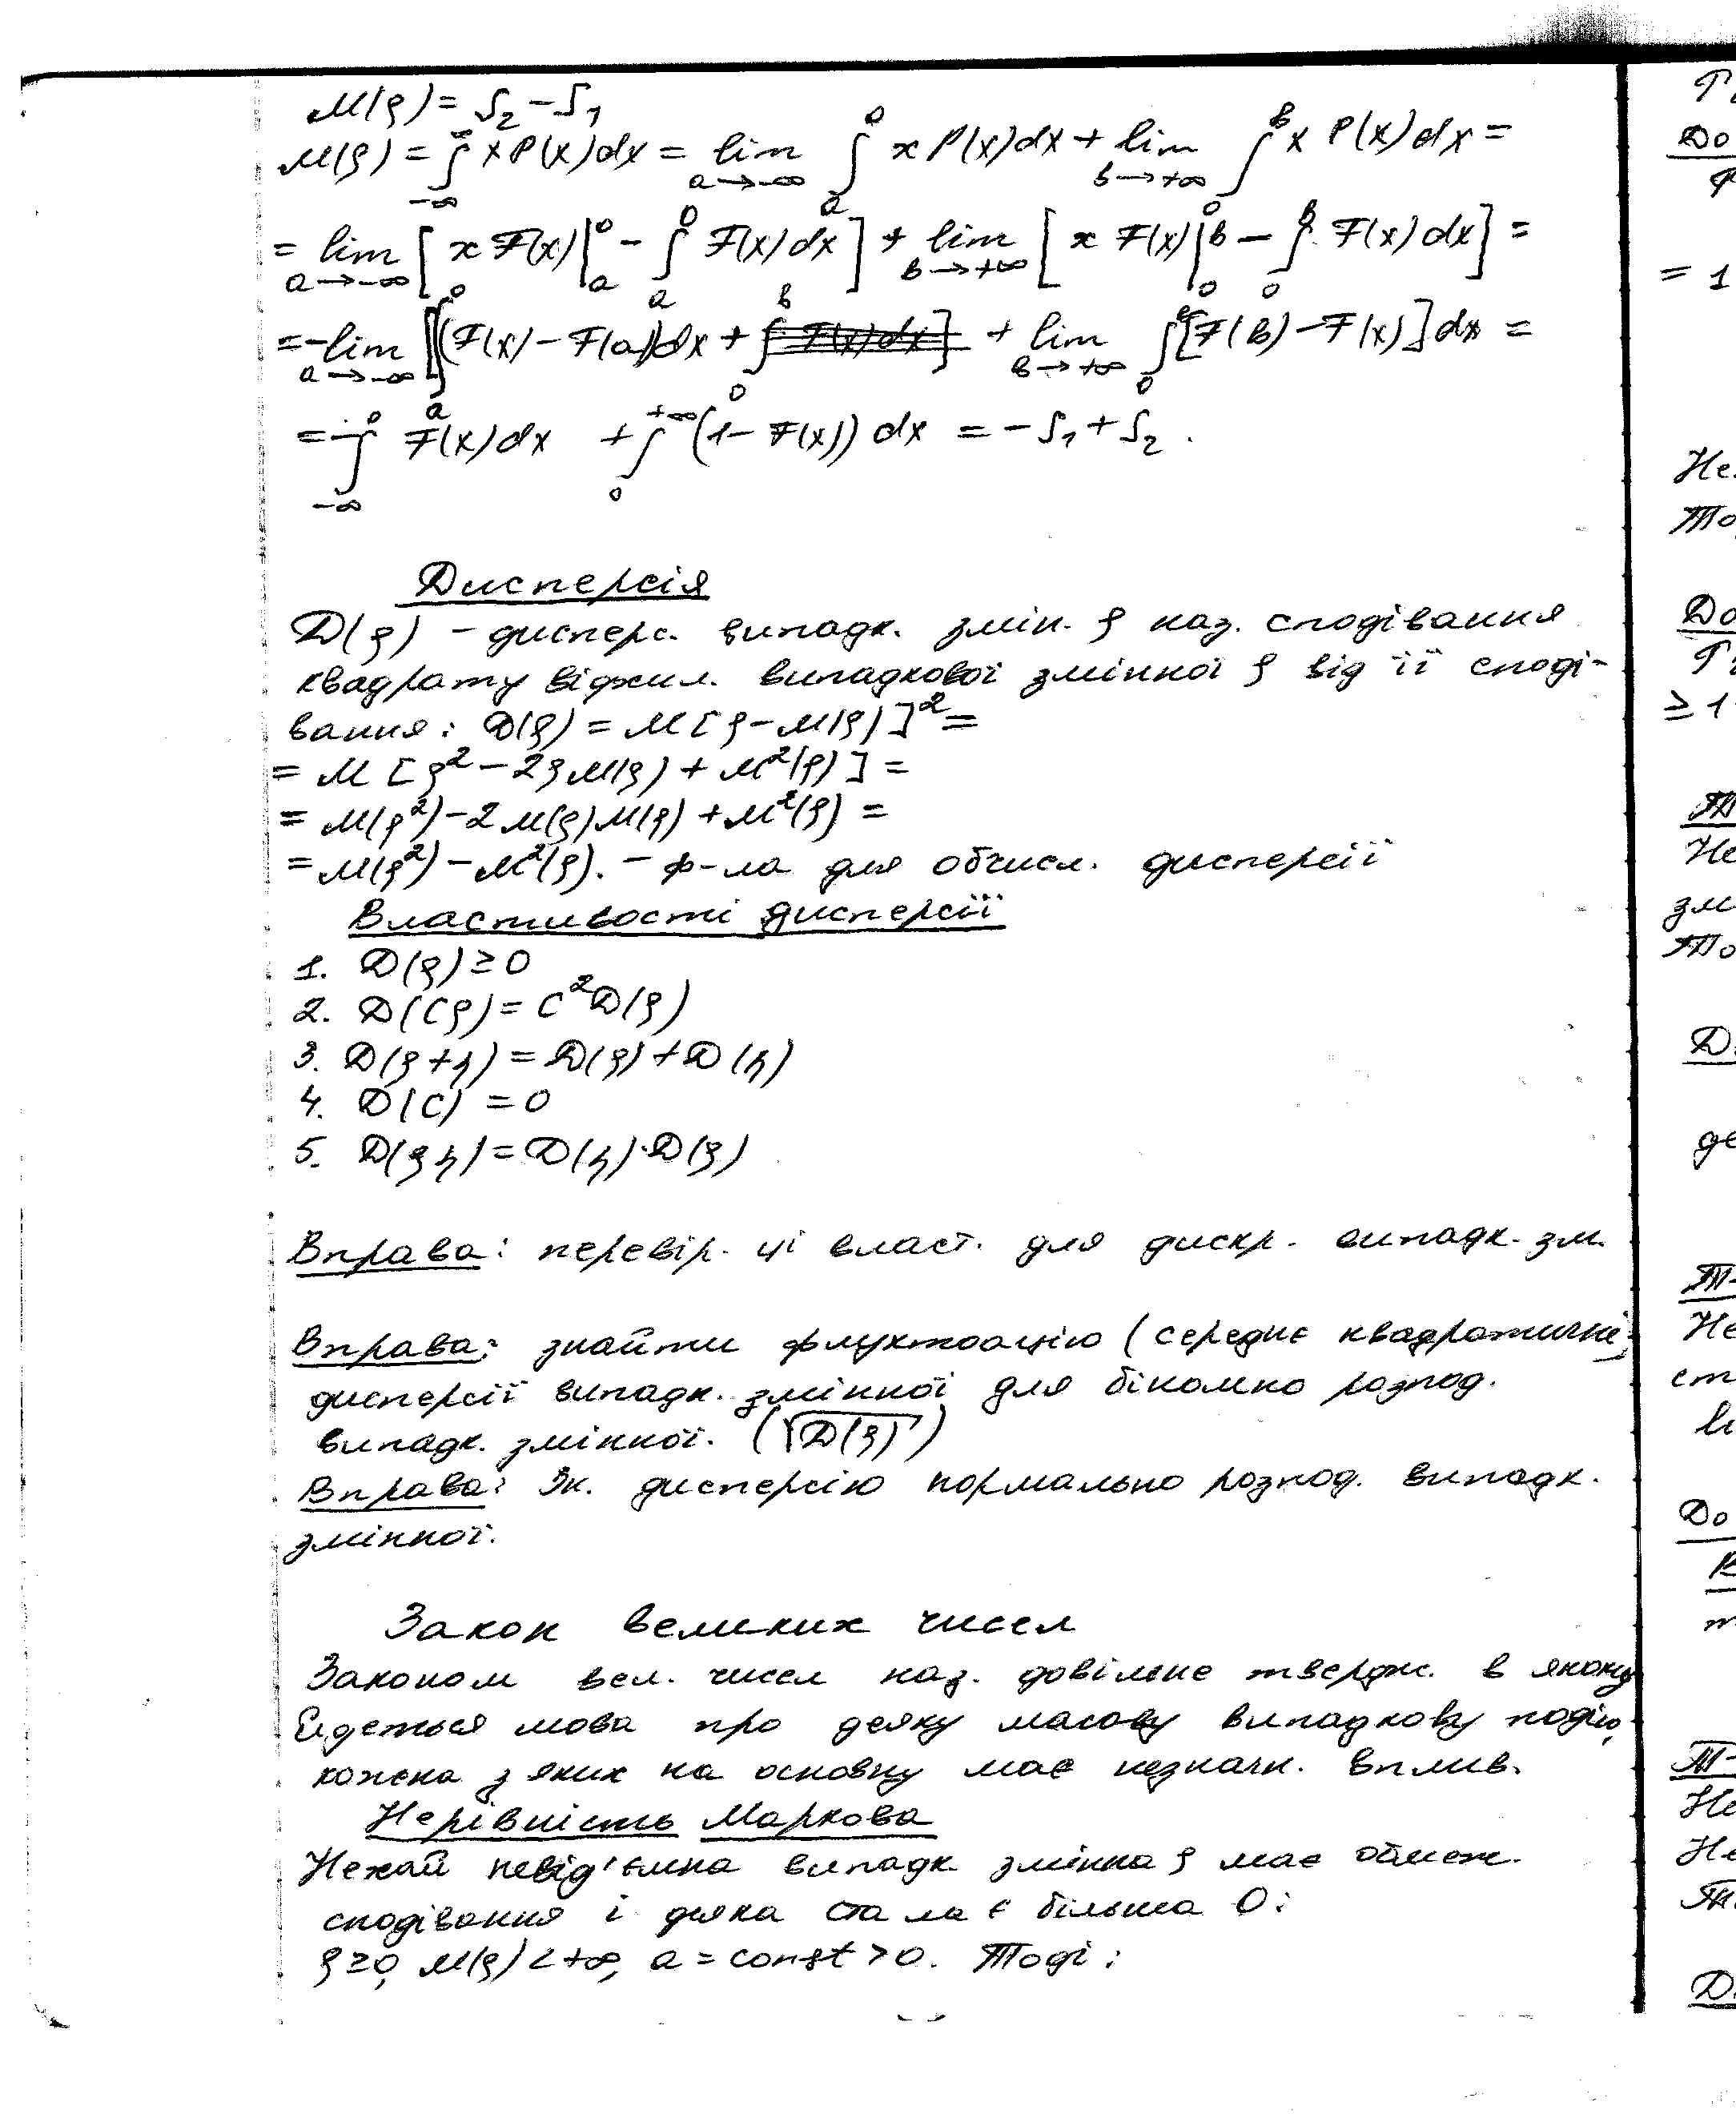 M(ξ) = S₂ − S₁
M(ξ) = ∫_{-∞}^{∞} x P(x) dx = lim_{a→-∞} ∫_a^0 x P(x) dx + lim_{b→+∞} ∫_0^b x P(x) dx =
= lim_{a→-∞} [x F(x)|_a^0 − ∫_a^0 F(x) dx] + lim_{b→+∞} [x F(x)|_0^b − ∫_0^b F(x) dx] =
= −lim_{a→-∞} ∫_a^0 (F(x) − F(a)) dx + lim_{b→+∞} ∫_0^b [F(b) − F(x)] dx =
= −∫_{-∞}^0 F(x) dx + ∫_0^{+∞} (1 − F(x)) dx = −S₁ + S₂.
Дисперсія
D(ξ) – дисперс. випадк. змін. ξ наз. сподівання
квадрату відхил. випадкової змінної ξ від її споді-
вання: D(ξ) = M[ξ − M(ξ)]² =
= M[ξ² − 2ξM(ξ) + M²(ξ)] =
= M(ξ²) − 2M(ξ)M(ξ) + M²(ξ) =
= M(ξ²) − M²(ξ). – ф-ла для обчисл. дисперсії
Властивості дисперсії
1. D(ξ) ≥ 0
2. D(Cξ) = C²D(ξ)
3. D(ξ+η) = D(ξ) + D(η)
4. D(C) = 0
5. D(ξη) = D(η)·D(ξ)
Вправа: перевір. ці власт. для дискр. випадк. зм.
Вправа: знайти флуктоацію (середнє квадратичне)
дисперсії випадк. змінної для біномно розпод.
випадк. змінної. (√D(ξ))
Вправа: Зн. дисперсію нормально розпод. випадк.
змінної.
Закон великих чисел
Законом вел. чисел наз. довільне тверд­ж. в якому
йдеться мова про деяку масову випадкову подію,
кожна з яких на основну має незначн. вплив.
Нерівність Маркова
Нехай невід'ємна випадк змінна ξ має обмеж.
сподівання і деяка стала є більша 0:
ξ ≥ 0, M(ξ) < +∞, a = const > 0. Тоді:
До
= 1
Не
До
≥ 1
Не
зм
То
де
Не
ст
До
Не
Не